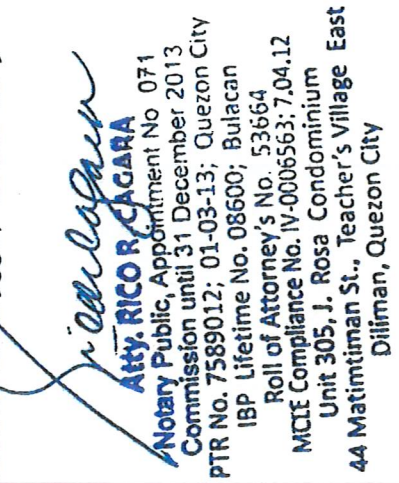 Atty. RICO R. CAGARA
Notary Public, Appointment No 071
Commission until 31 December 2013
PTR No. 7589012; 01-03-13; Quezon City
IBP Lifetime No. 08600; Bulacan
Roll of Attorney's No. 53664
MCLE Compliance No. IV-0006563; 7.04.12
Unit 305, J. Rosa Condominium
44 Matimtiman St., Teacher's Village East
Diliman, Quezon City